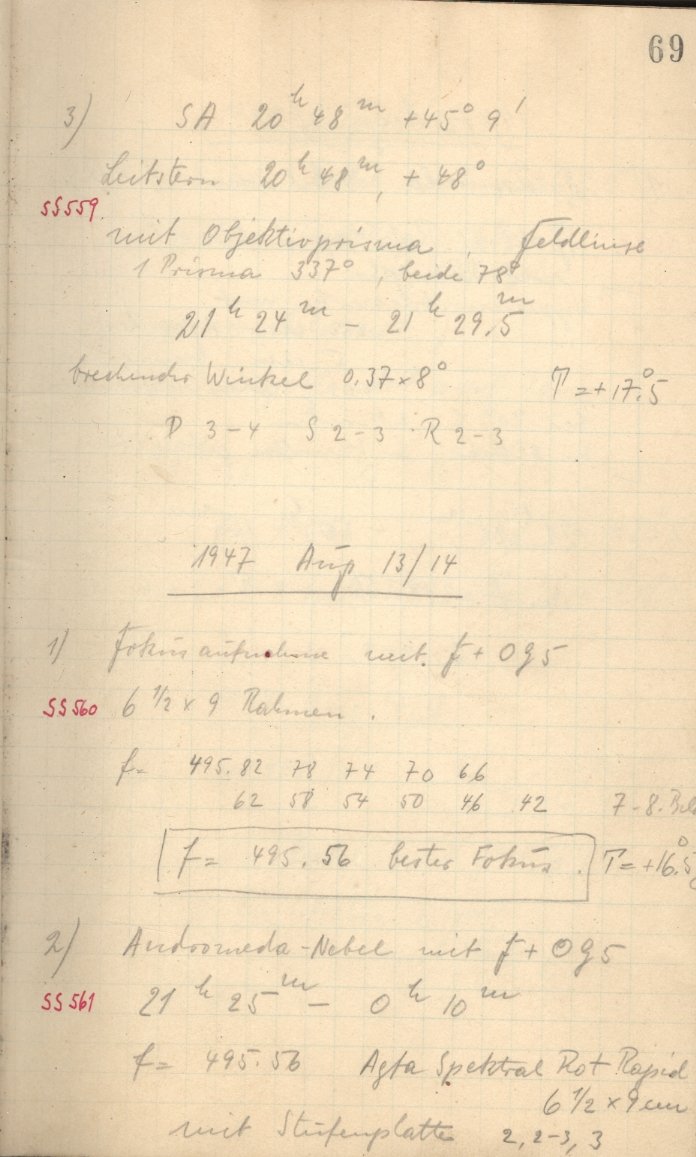 69
3) SA 20h 48m +45° 9'
Leitstern 20h 48m, + 48°
SS559
mit Objektivprisma, Feldlinse
1 Prisma 337°, beide 78°
21h 24m - 21h 29.5m
brechender Winkel 0.37 x 8° T = +17.°5
D 3-4 S 2-3 R 2-3
1947 Aug 13/14
1) Fokusaufnahme mit F + OG5
SS560 6 1/2 x 9 Rahmen.
f = 495.82 78 74 70 66
62 58 54 50 46 42 7-8. Bild
f = 495.56 bester Fokus. T = +16.°5
2) Andromeda-Nebel mit F + OG5
SS561 21h 25m - 0h 10m
f = 495.56 Agfa Spektral Rot Rapid
6 1/2 x 9 cm
mit Stufenplatte 2, 2-3, 3